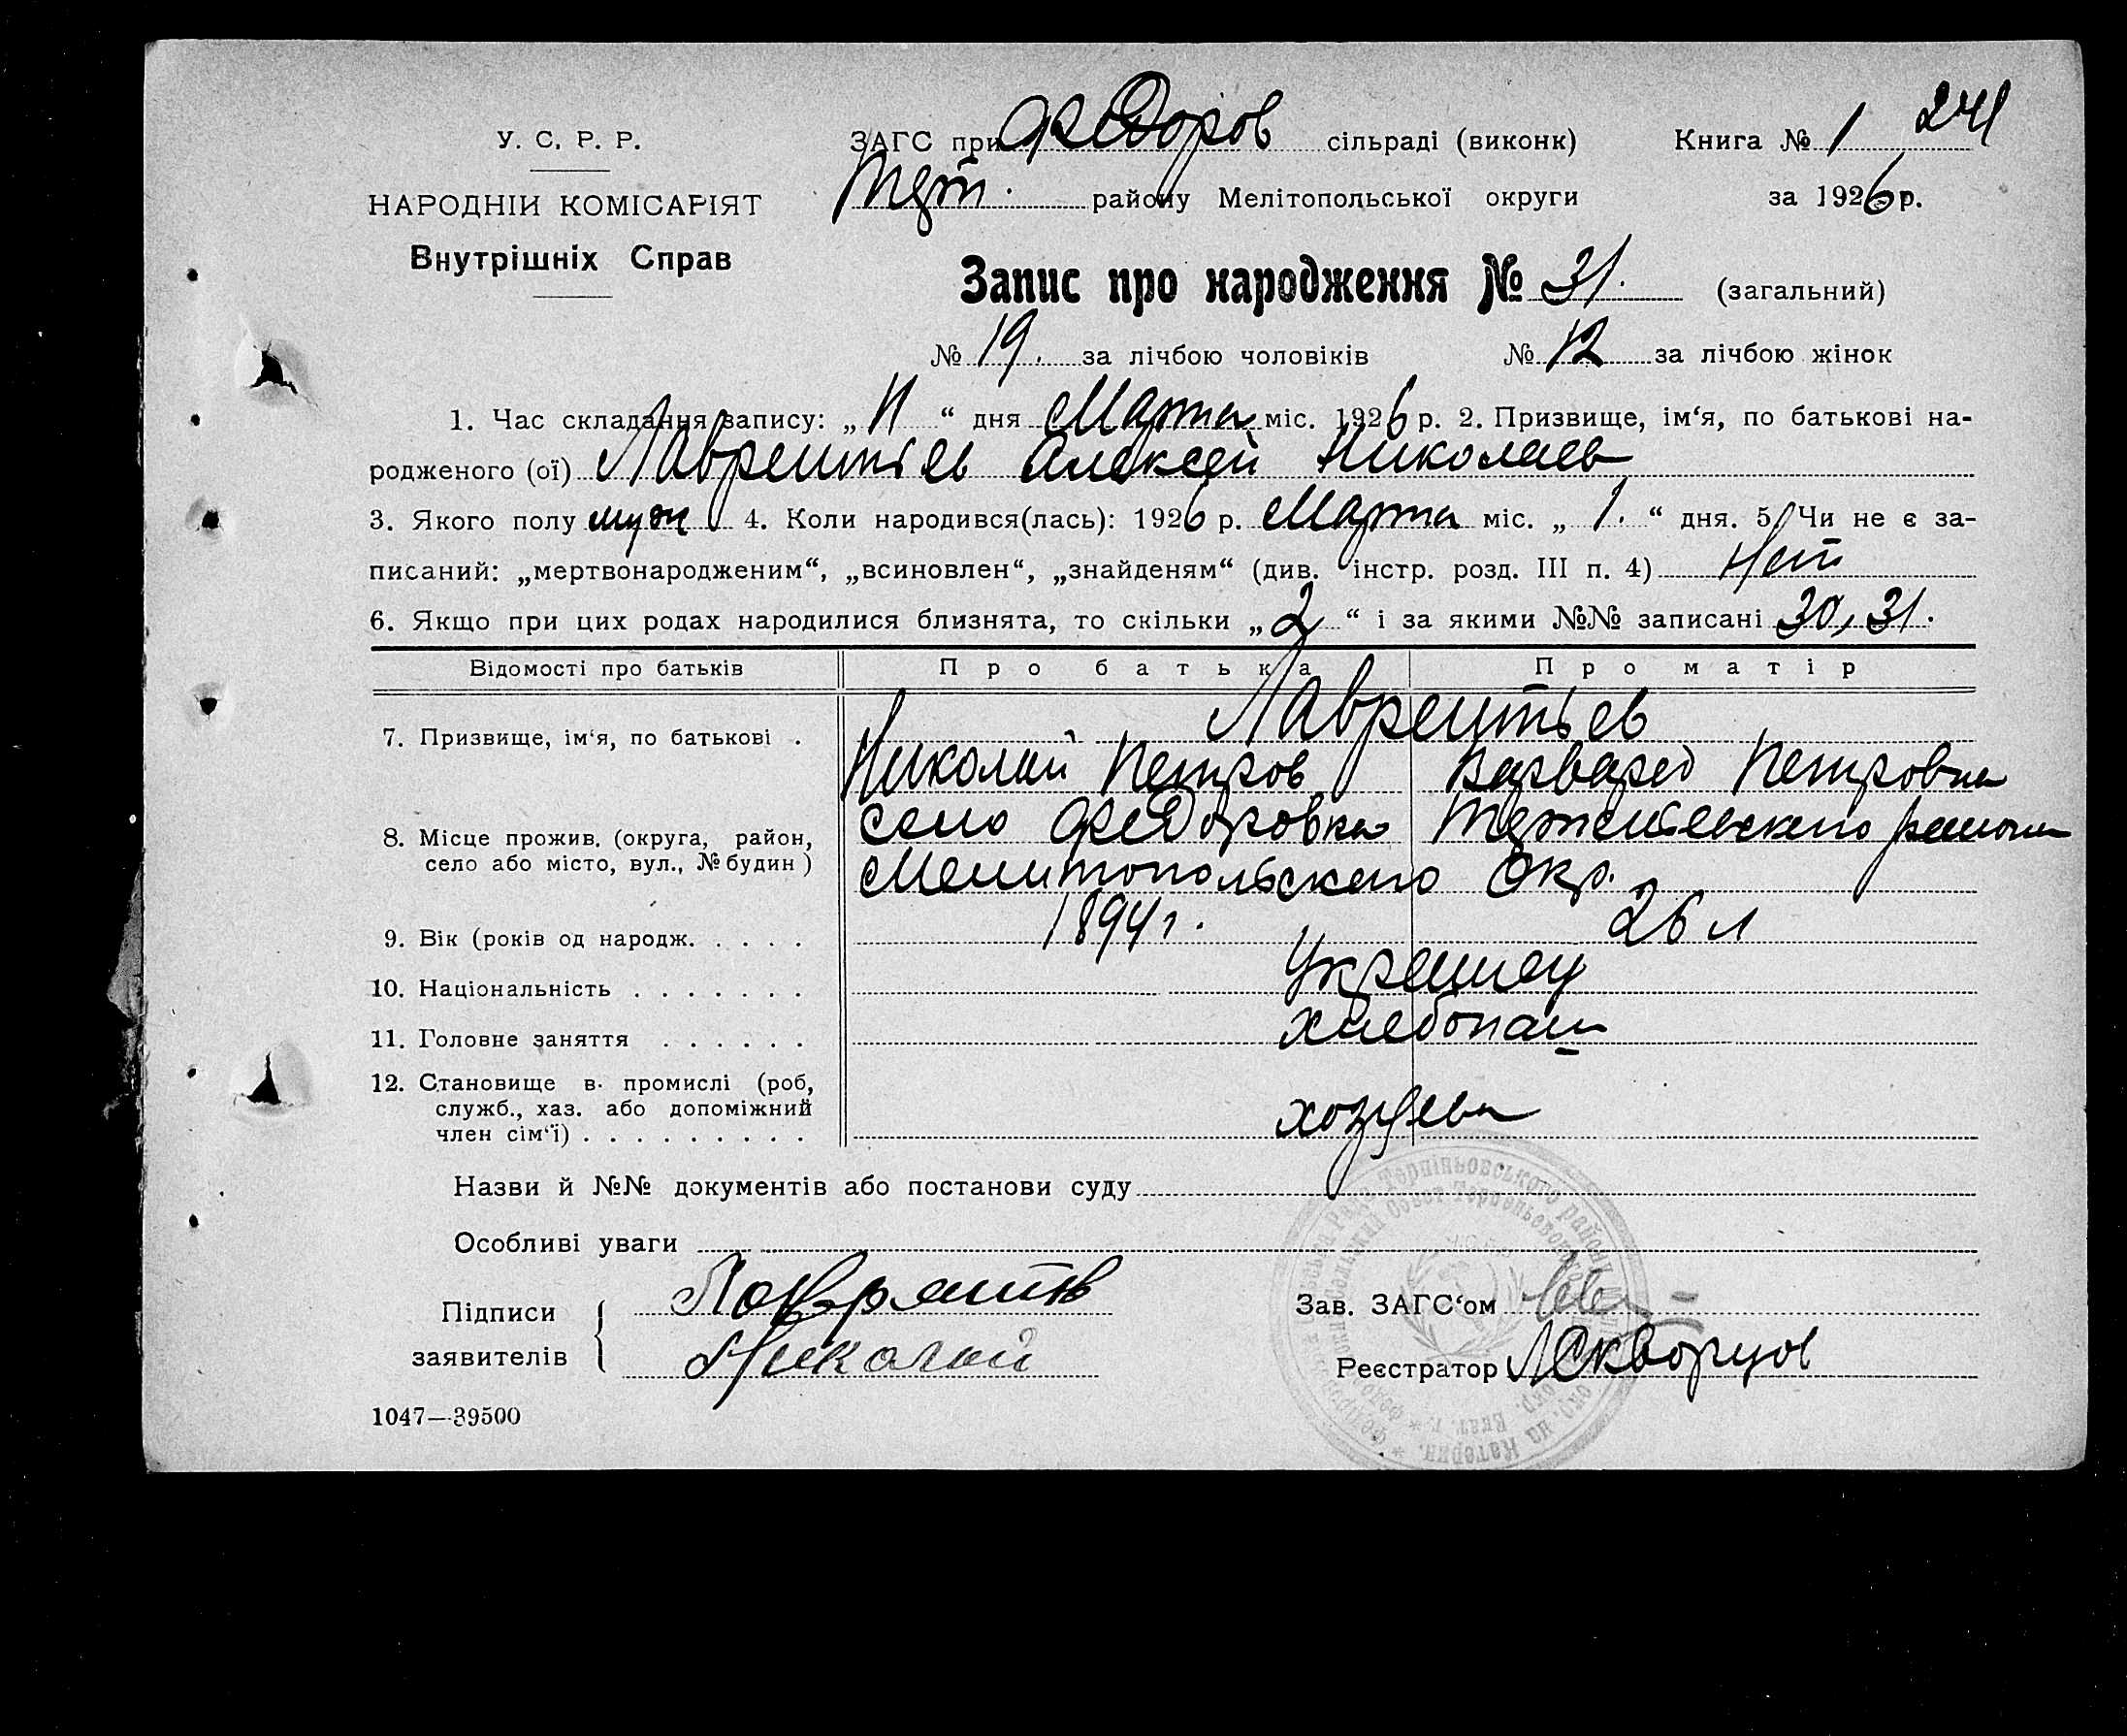 244
У. С. Р. Р.
НАРОДНІЙ КОМІСАРІЯТ
Внутрішніх Справ
ЗАГС при Федоров сільраді (виконк) Книга № 1
Терп. району Мелітопольської округи за 1926 р.
Запис про народження № 31. (загальний)
№ 19. за лічбою чоловіків № 12 за лічбою жінок
1. Час складання запису: „11“ дня Марта міс. 1926 р. 2. Призвище, ім‘я, по батькові на-
родженого (ої) Лаврентьев Алексей Николаев
3. Якого полу муж 4. Коли народився(лась): 1926 р. Марта міс. „1.“ дня. 5. Чи не є за-
писаний: „мертвонародженим“, „всиновлен“, „знайденям“ (див. інстр. розд. III п. 4) Нет
6. Якщо при цих родах народилися близнята, то скільки „2“ і за якими №№ записані 30, 31.
Відомості про батьків Про батька Про матір
7. Призвище, ім‘я, по батькові . Лаврентьев
Николай Петров Варвара Петровна
8. Місце прожив. (округа, район,
село або місто, вул., № будин)
село Федоровка района
Мелитопольского Окр.
9. Вік (років од народж. . . . . 1894 г. 26 л
10. Національність . . . . . . . Украинец
11. Головне заняття . . . . . . хлебопаш
12. Становище в. промислі (роб,
служб., хаз. або допоміжний
член сім‘ї) . . . . . . . . . хозяева
Назви й №№ документів або постанови суду
Особливі уваги
Підписи
заявителів
Николай
Зав. ЗАГС‘ом
Реєстратор Скворцов
1047—39500